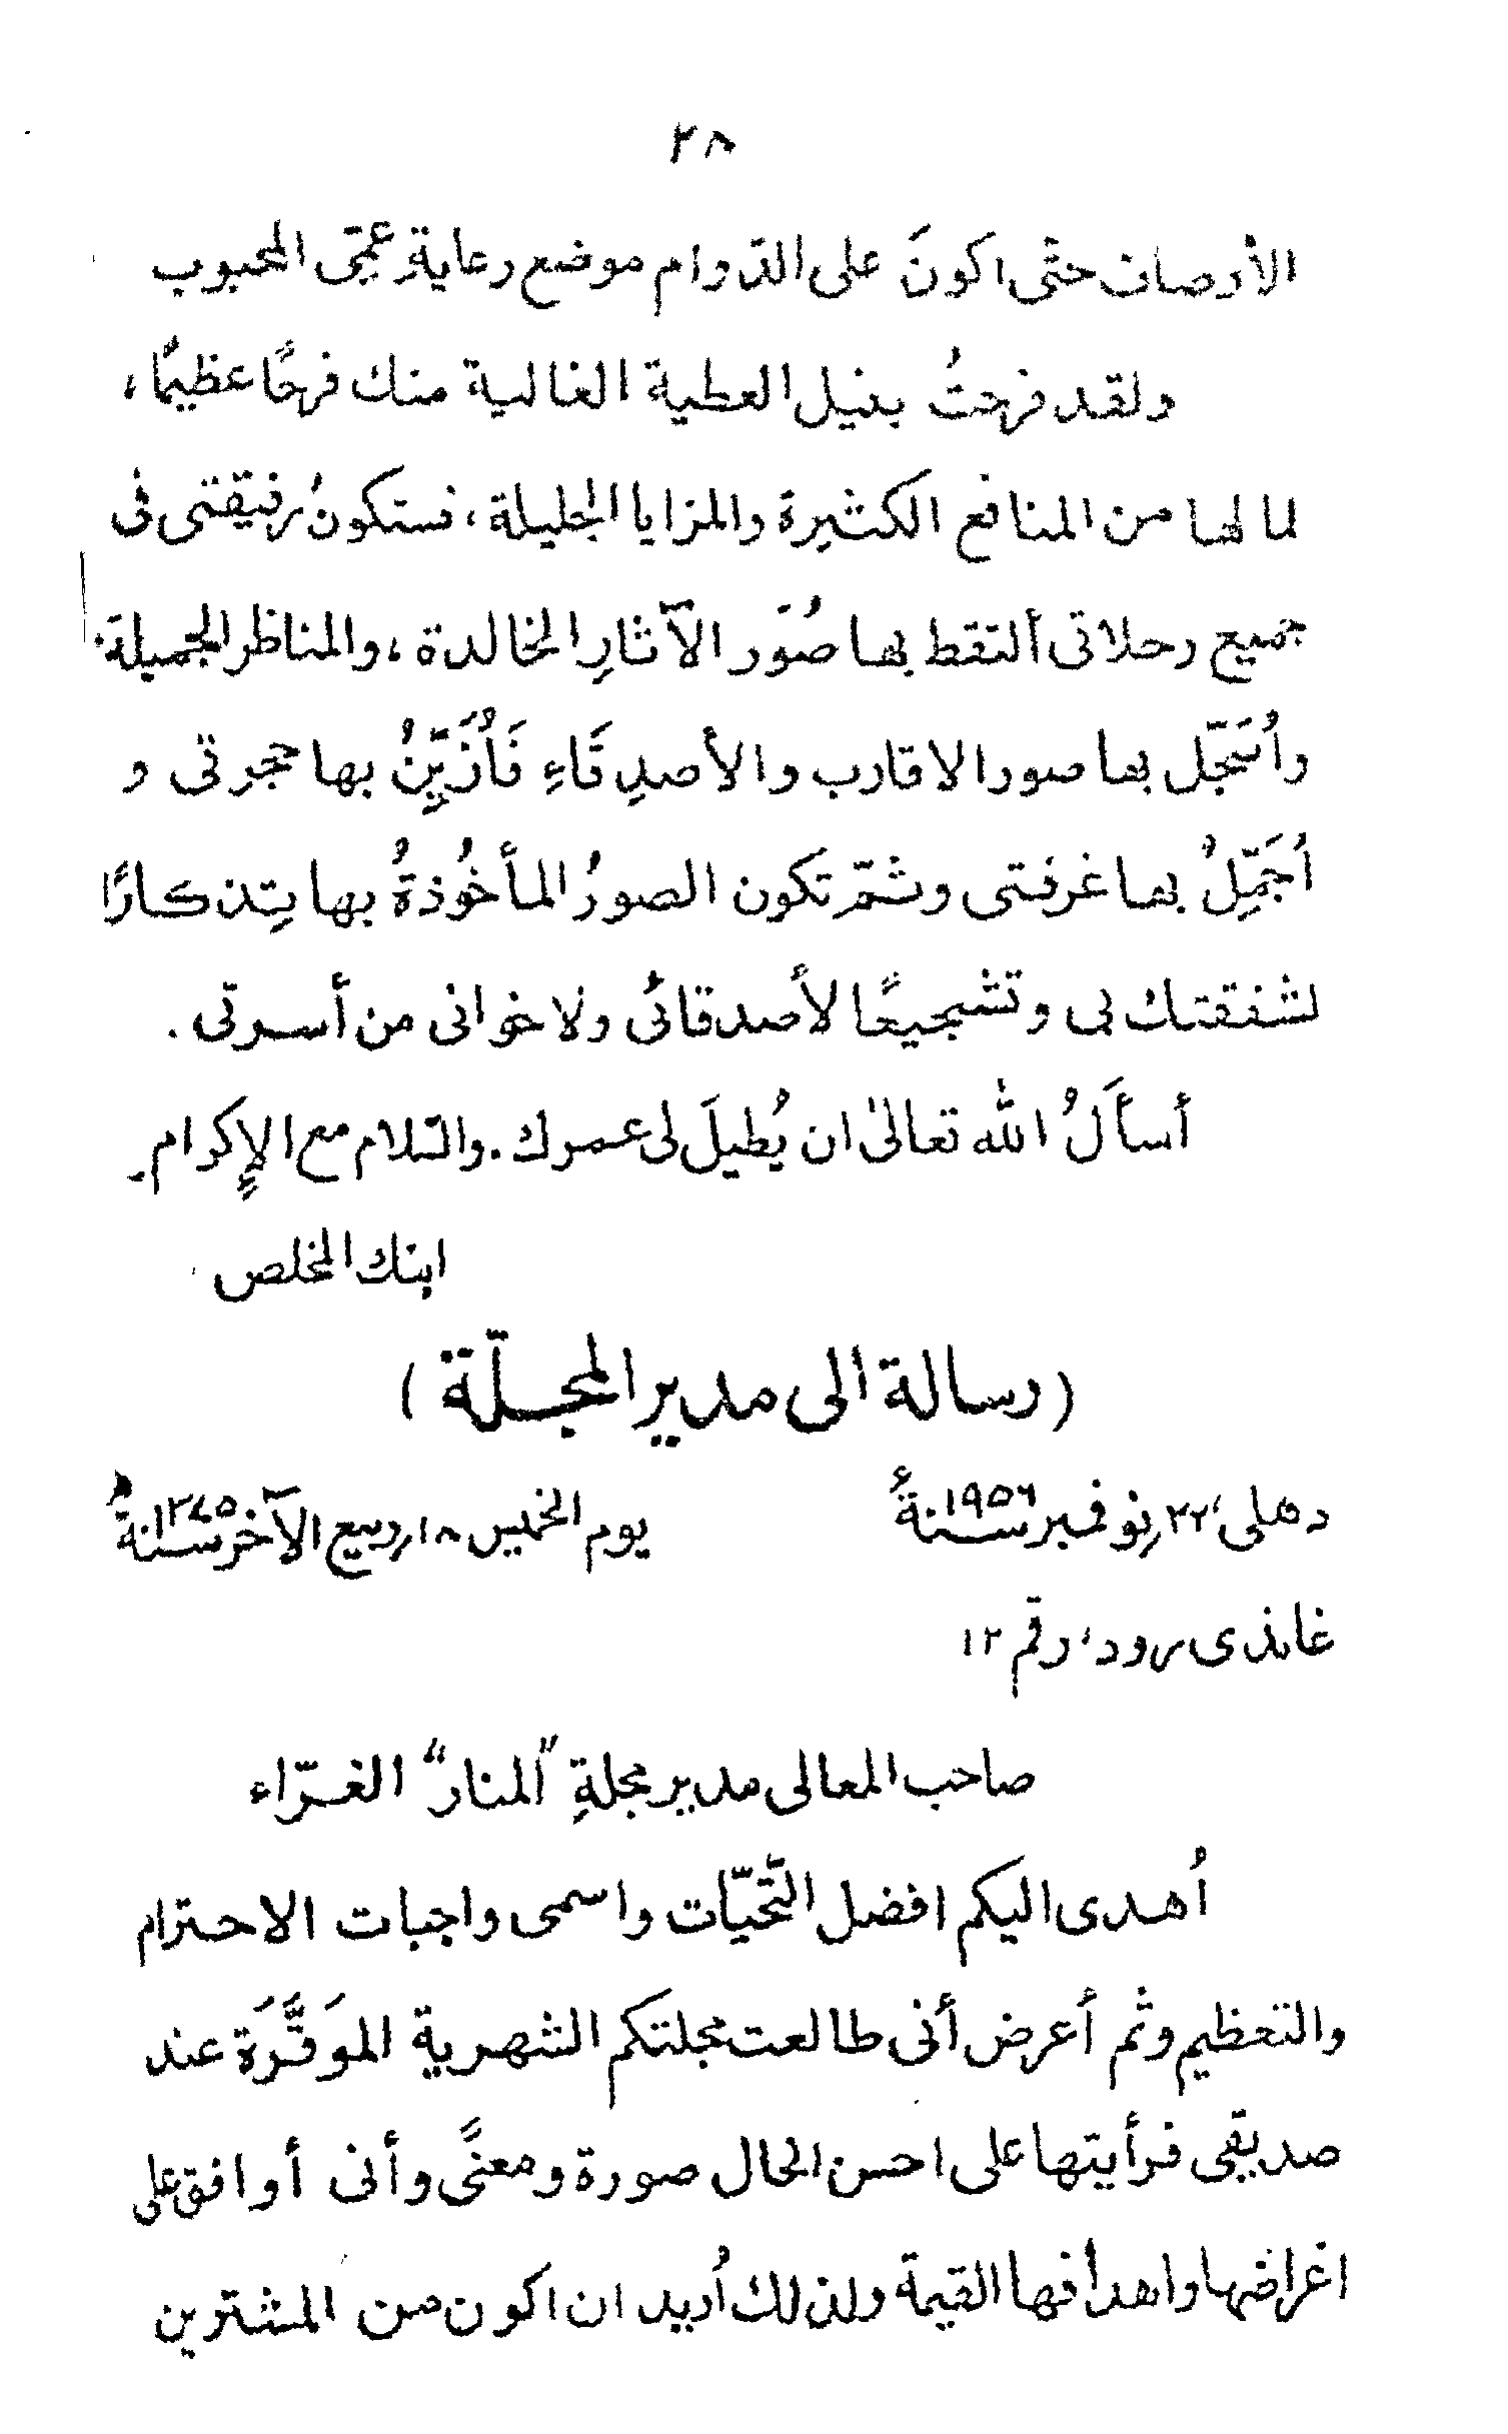 ٢٨
الأوصاف حتّى اكونَ على الدّوام موضع رعايةِ عمّى المحبوب
ولقد فرحتُ بنيل العطية الغالية منك فرحًا عظيمًا،
لما لها من المنافع الكثيرة والمزايا الجليلة، فستكونُ رفيقتى فى
جميع رحلاتى ألتقط بها صُوَر الآثارِ الخالدة، والمناظر الجميلة.
وأُسَجّل بها صور الاقارب والأصدِقَاءِ فَأُزَيِّنُ بها حجرتى و
اُجَمِّلُ بها غرفتى وثمّ تكون الصورُ المأخُوذةُ بها تِذكارًا
لشفقتك لى وتشجيعًا لأصدقائى ولاخوانى من أسرتى.
أسأَلُ الله تعالىٰ ان يُطيلَ لى عمرك. والسّلام مع الإِكرام۔
ابنك المخلص
(رسالة الى مدير المجلّة)
دهلى، ٢٢؍نوفمبر سنة ١٩٥٦ء يوم الخميس ١٨؍ربيع الآخر سنة ١٣٧٥ھ
غاندى رود، رقم ١٢
صاحب المعالى مدير مجلةِ "المنار" الغرّاء
اُهدى اليكم افضل التّحيّات واسمى واجبات الاحترام
والتعظيم وثم أعرض أنى طالعت مجلتكم الشهرية الموَقَّرَة عند
صديقى فرأيتها على احسن الحال صورة ومعنًى وأنى أوافق على
اغراضها واهدافها القيمة ولذلك اُريد ان اكون من المشترين